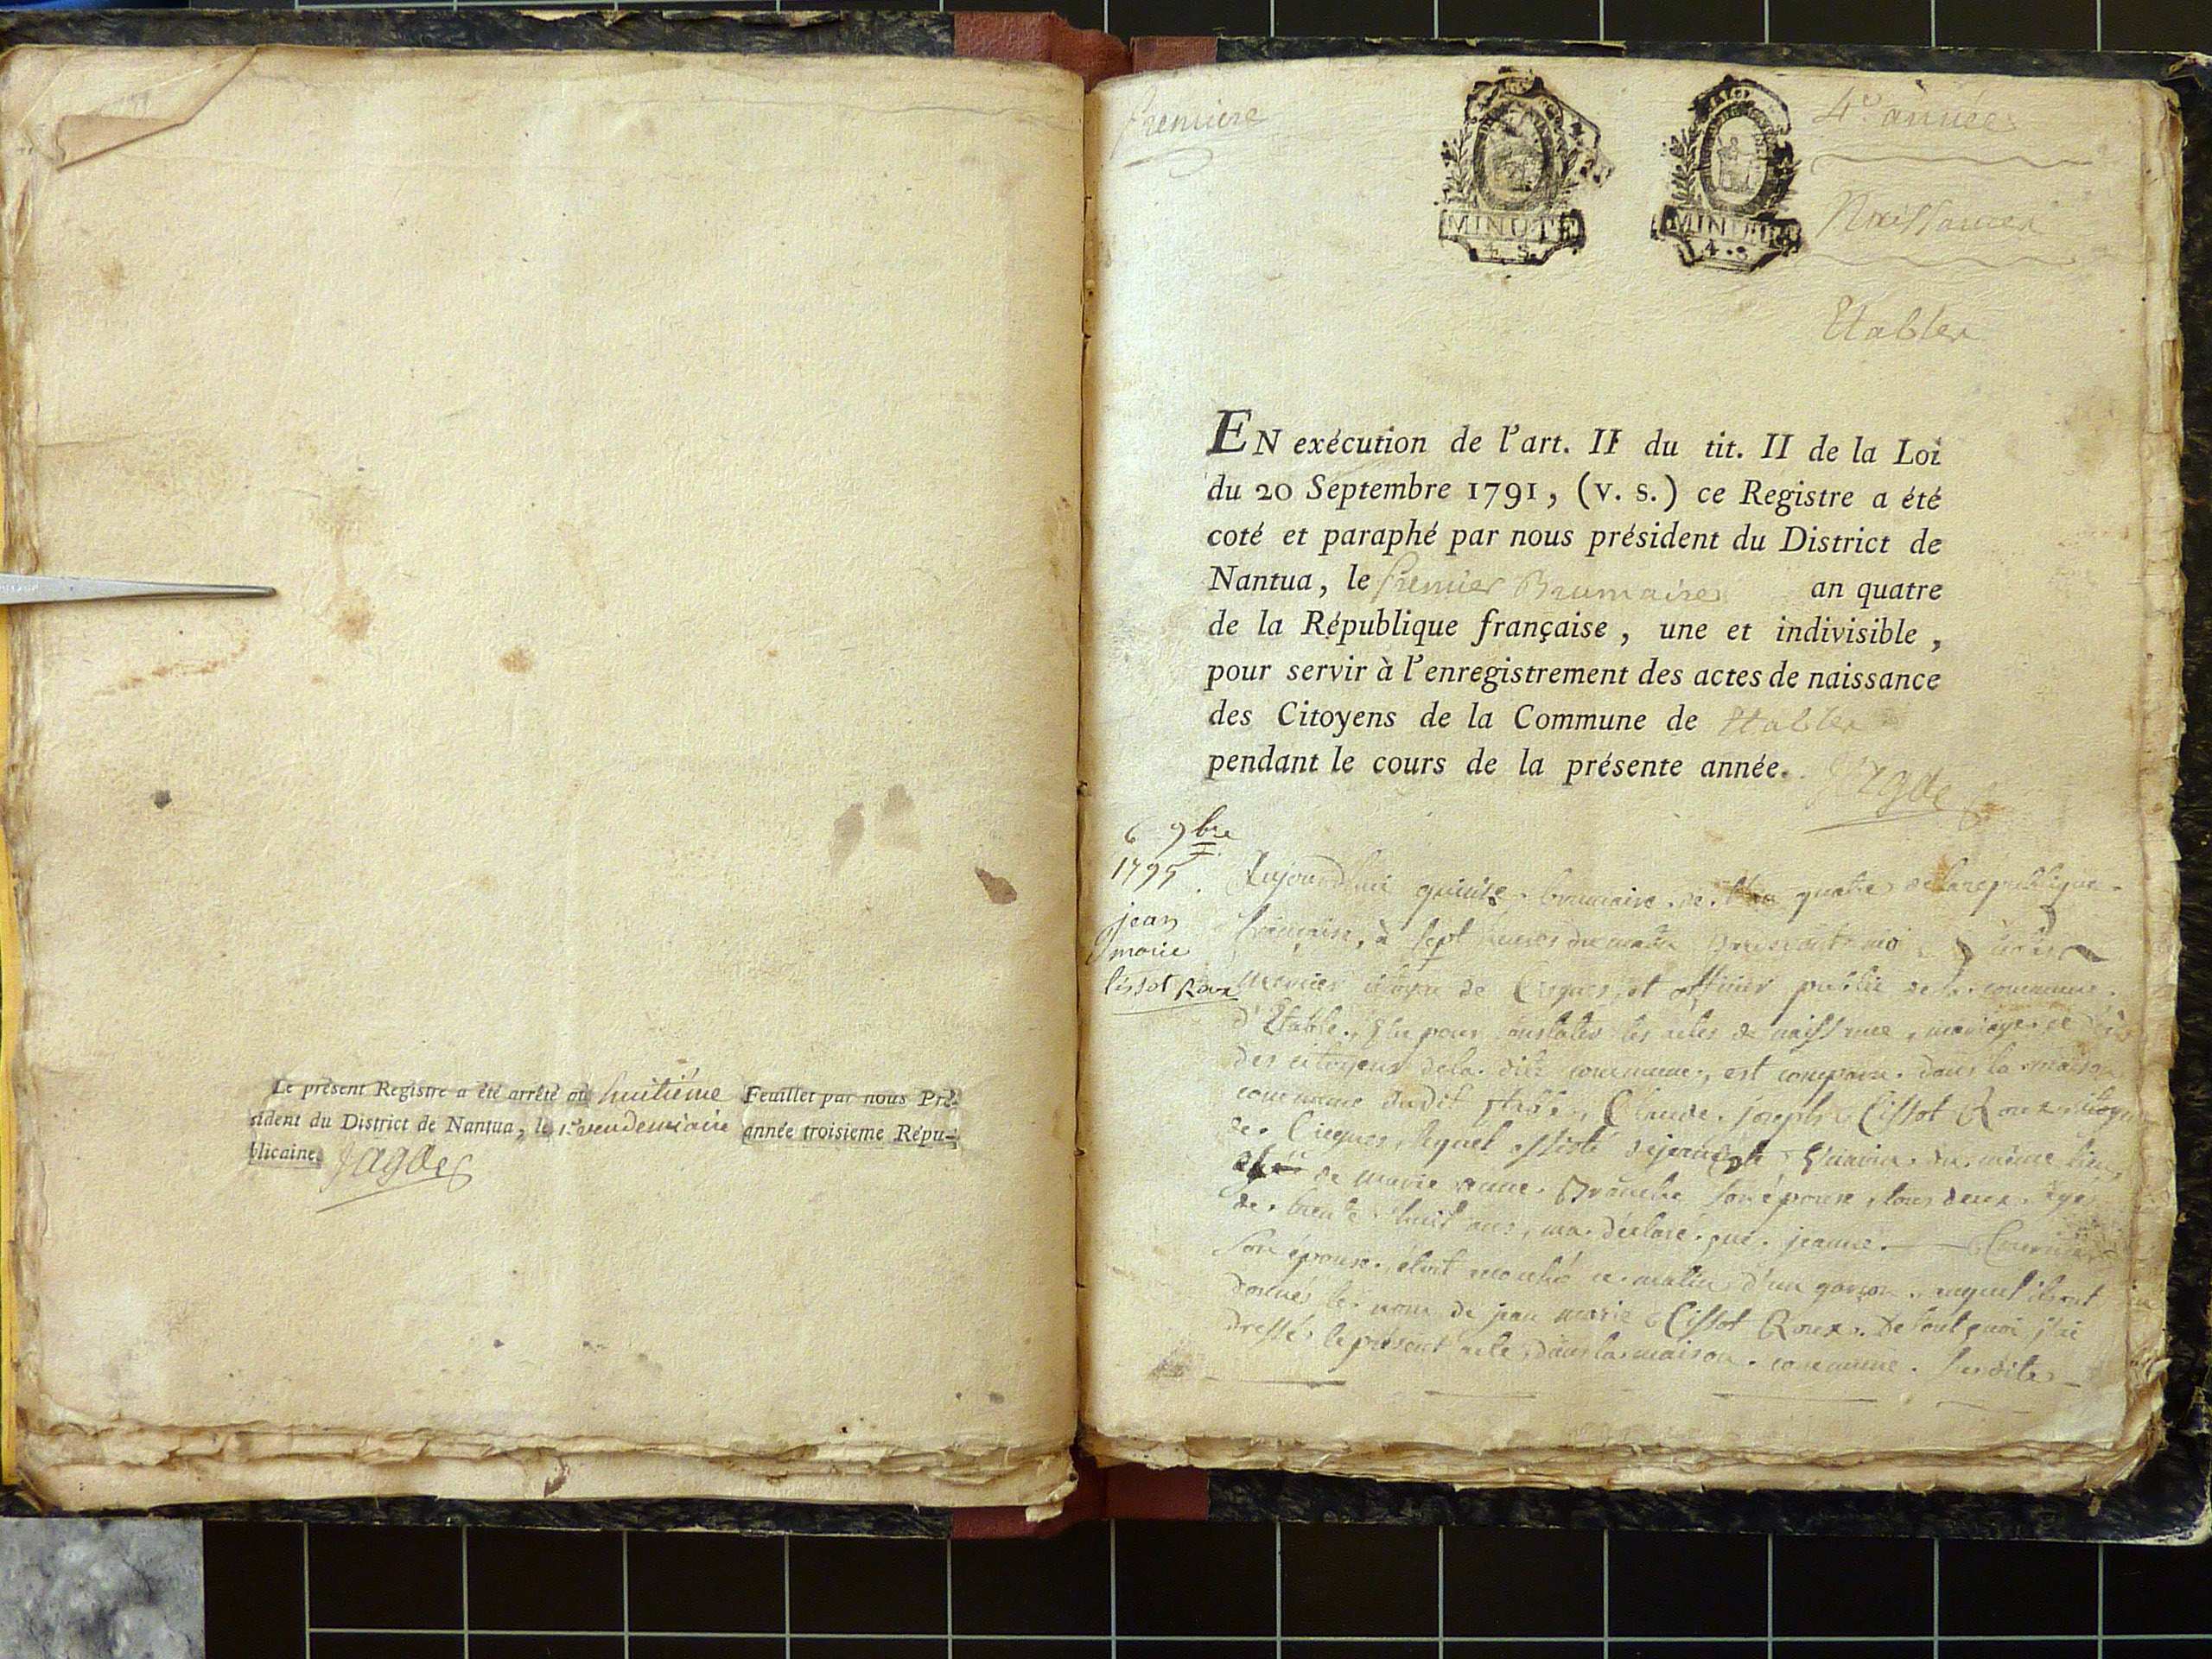 Le présent Registre a été arrêté au huitième Feuillet par nous Pré-
sident du District de Nantua, le 1er vendemiaire année troisieme Répu-
blicaine. Jagde
Premiere
MINUTE
4. S.
MINUTE
4. S.
4e année
Naissances
Etables
EN exécution de l'art. II du tit. II de la Loi
du 20 Septembre 1791, (v. s.) ce Registre a été
coté et paraphé par nous président du District de
Nantua, le Premier Brumaire an quatre
de la République française, une et indivisible,
pour servir à l'enregistrement des actes de naissance
des Citoyens de la Commune de Etables
pendant le cours de la présente année. Jagde
6 9bre
1795
jean
marie
lissot Roux
Aujourdhui quinze brumaire de l'an quatre de la republique
francaise, à sept heures du matin
Mercier citoyen de et officier public de la commune
d'Etable. Elu pour constater les actes de naissance, mariage et
des citoyens de la dite commune, est comparu dans la maison
commune dudit Etables, Claude joseph Cissot Roux citoyen
de lequel assisté de du même lieu,
de marie son épouse, tous deux agés
de trente huit ans, m'a déclaré que jeanne
son épouse étoit accouché ce matin d'un garcon auquel ils ont
donnés le nom de jean marie Cissot Roux. De tout quoi j'ai
dressé le présent acte dans la maison commune. Susdite